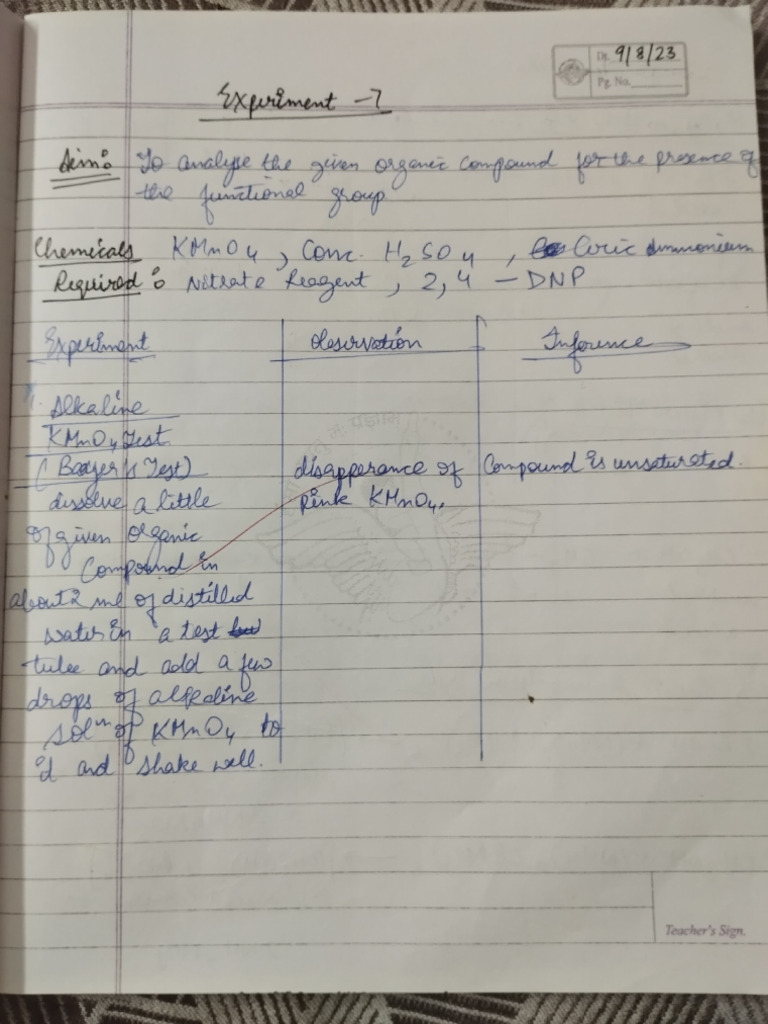 Dt. 9/8/23
Pg. No.
Experiment -7
Aim: To analyse the given organic compound for the presence of
the functional group
Chemicals KMnO4, Conc. H2SO4, Ceric Ammonium
Required: Nitrate Reagent, 2,4 - DNP
Experiment Observation Inference
1. Alkaline
KMnO4 Test
(Baeyer's Test) disapperance of Compound is unsaturated.
dissolve a little pink KMnO4.
of given organic
Compound in
about 2 ml of distilled
water in a test
tube and add a few
drops of alkaline
solⁿ of KMnO4 to
it and shake well.
Teacher's Sign.